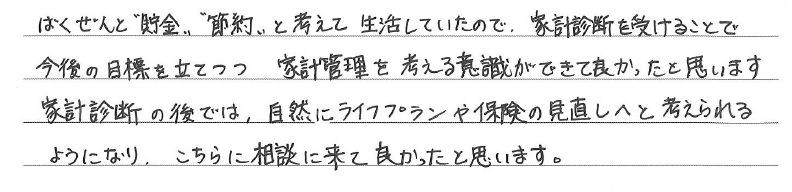 ばくぜんと"貯金〟"節約〟と考えて生活していたので、家計診断を受けることで
今後の目標を立てつつ 家計管理を考える意識ができて良かったと思います
家計診断の後では、自然にライフプランや保険の見直しへと考えられる
ようになり、こちらに相談に来て良かったと思います。